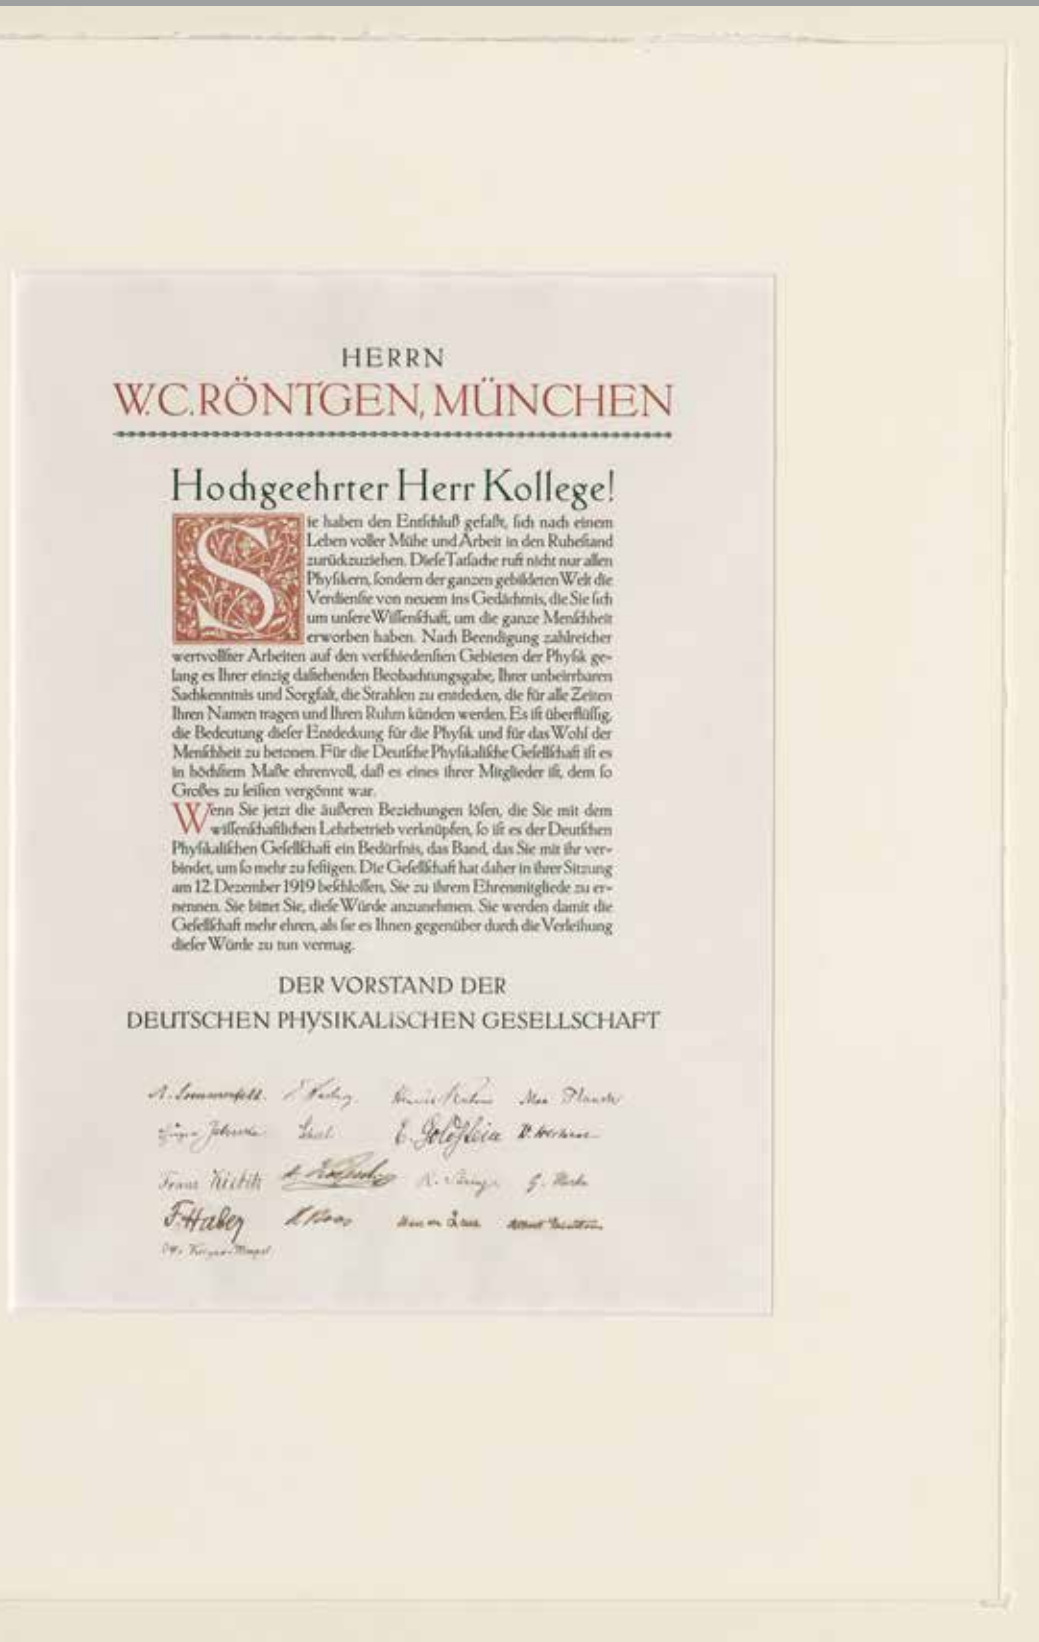 HERRN
W.C.RÖNTGEN, MÜNCHEN
Hochgeehrter Herr Kollege!
Sie haben den Entſchluß gefaßt, ſich nach einem
Leben voller Mühe und Arbeit in den Ruheſtand
zurückzuziehen. Dieſe Tatſache ruft nicht nur allen
Phyſikern, ſondern der ganzen gebildeten Welt die
Verdienſte von neuem ins Gedächtnis, die Sie ſich
um unſere Wiſſenſchaft, um die ganze Menſchheit
erworben haben. Nach Beendigung zahlreicher
wertvollſter Arbeiten auf den verſchiedenſten Gebieten der Phyſik ge-
lang es Ihrer einzig daſtehenden Beobachtungsgabe, Ihrer unbeirrbaren
Sachkenntnis und Sorgfalt, die Strahlen zu entdecken, die für alle Zeiten
Ihren Namen tragen und Ihren Ruhm künden werden. Es iſt überflüſſig,
die Bedeutung dieſer Entdeckung für die Phyſik und für das Wohl der
Menſchheit zu betonen. Für die Deutſche Phyſikaliſche Geſellſchaft iſt es
in höchſtem Maße ehrenvoll, daß es eines ihrer Mitglieder iſt, dem ſo
Großes zu leiſten vergönnt war.
Wenn Sie jetzt die äußeren Beziehungen löſen, die Sie mit dem
wiſſenſchaftlichen Lehrbetrieb verknüpfen, ſo iſt es der Deutſchen
Phyſikaliſchen Geſellſchaft ein Bedürfnis, das Band, das Sie mit ihr ver-
bindet, um ſo mehr zu feſtigen. Die Geſellſchaft hat daher in ihrer Sitzung
am 12. Dezember 1919 beſchloſſen, Sie zu ihrem Ehrenmitgliede zu er-
nennen. Sie bittet Sie, dieſe Würde anzunehmen. Sie werden damit die
Geſellſchaft mehr ehren, als ſie es Ihnen gegenüber durch die Verleihung
dieſer Würde zu tun vermag.
DER VORSTAND DER
DEUTSCHEN PHYSIKALISCHEN GESELLSCHAFT
A. Sommerfeld. Max Planck
E. Goldſtein
F. Haber Max von Laue Albert Einstein